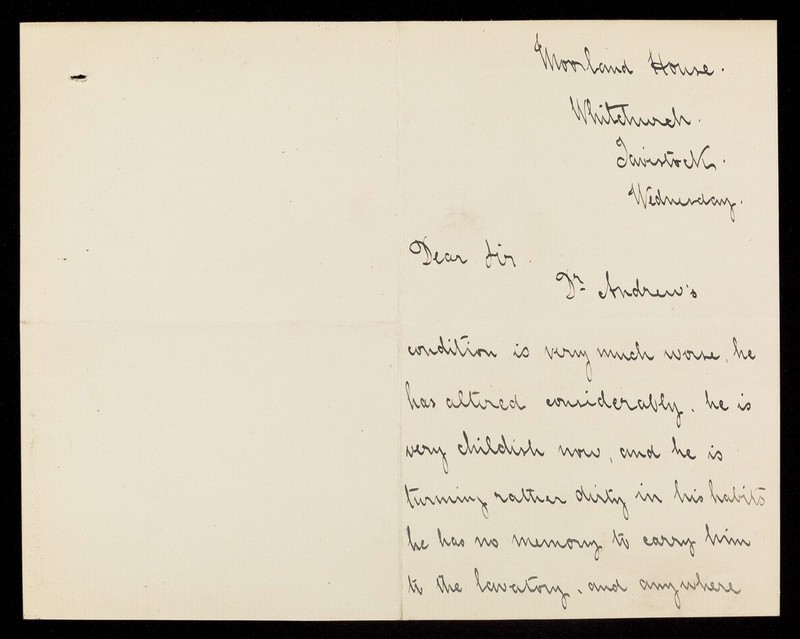 Moorland House.
Whitchurch.
Tavistock.
Wednesday.
Dear Sir.
Dr. Andrew's
condition is very much worse, he
has altered considerably. he is
very childish now, and he is
turning rather dirty in his habits
he has no memory to carry him
to the lavatory, and anywhere